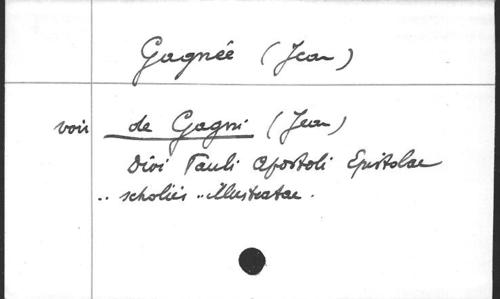 Gagnée (Jean)
voir de Gagni (Jean)
Divi Pauli Apostoli Epistolae
.. scholiis .. illustratae.